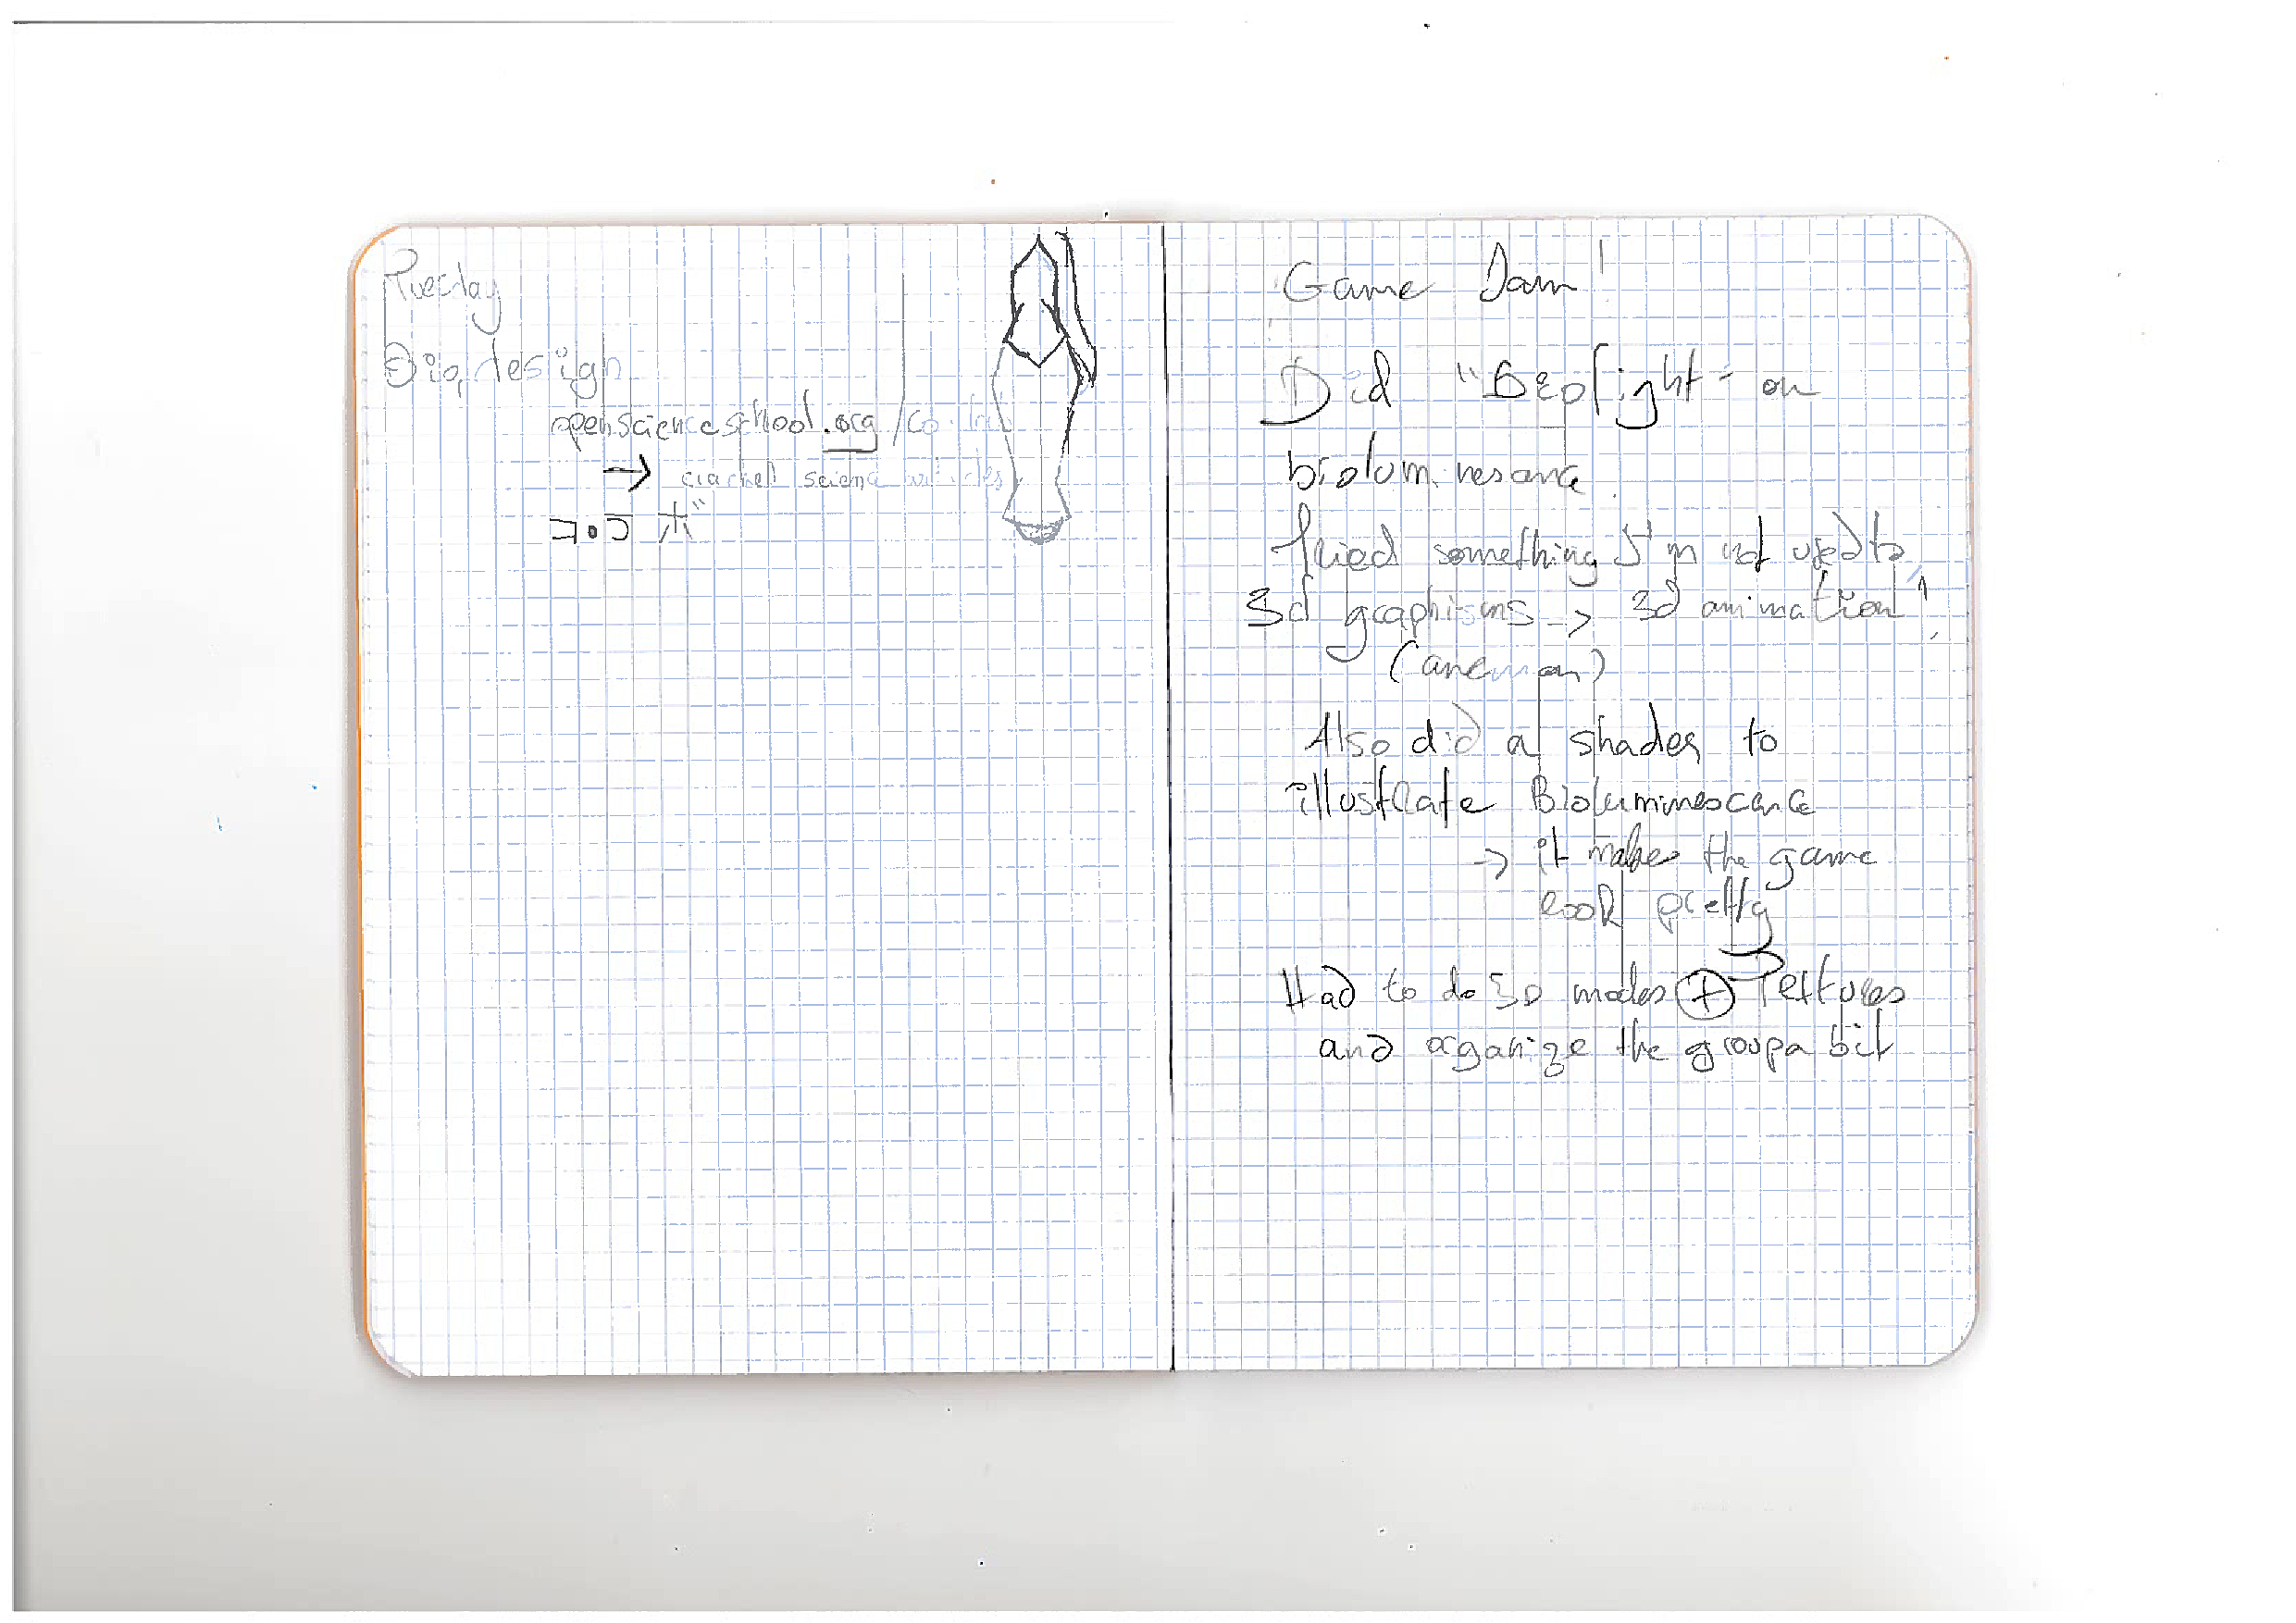 Tuesday
Bio, design
openscienceschool.org /
→ science
Game Jam!
Did "Deplight" on
bioluminesance
Tried something I'm not used to,
3d graphisms → 3d animation!
Also did a shader to
illustrate Bioluminescence
→ it makes the game
look pretty
Had to do 3D modes + Textures
and organize the group a bit